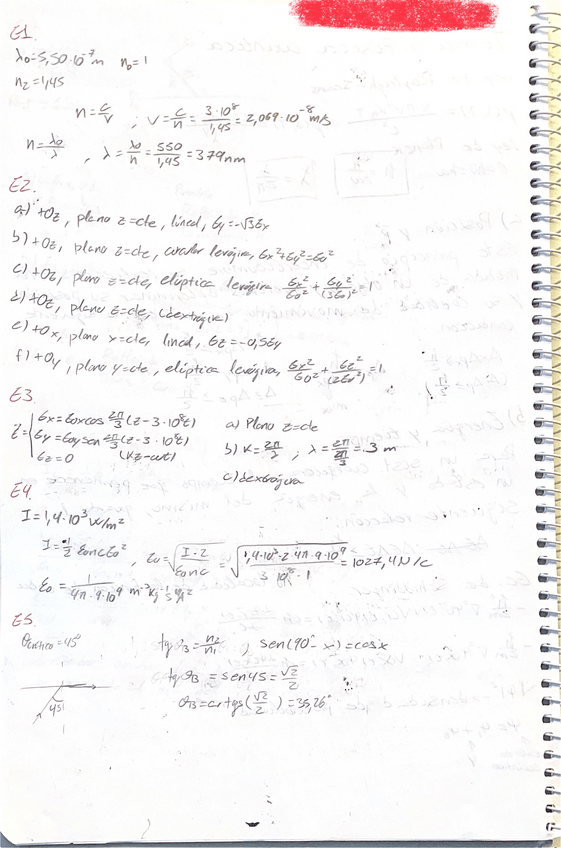 E1.
λ₀=5,50·10⁻⁷m n₀=1
n₂=1,45
n=c/v ; v=c/n=3·10⁸/1,45=2,069·10⁻⁸ m/s
n=λ₀/λ , λ=λ₀/n=550/1,45=379nm
E2.
a) +Oz, plano z=cte, lineal, Ey=-√3Ex
b) +Oz, plano z=cte, circular levógira, Ex²+Ey²=E0²
c) +Oz, plano z=cte, elíptica levógira Ex²/E0²+Ey²/(3E0)²=1
d) +Oz, plano z=cte, (dextrógira)
e) +Ox, plano x=cte, lineal, Ez=-0,5Ey
f) +Oy, plano y=cte, elíptica levógira, Ex²/E0²+Ez²/(2E0)²=1.
E3.
Ex=E0x cos 2π/3(z-3·10⁸t) a) Plano z=cte
Ey=E0y sen 2π/3(z-3·10⁸t) b) K=2π/λ, λ=2π/(2π/3)=3 m
Ez=0 (Kz-ωt)
c) dextrógira
E4.
I=1,4·10³ W/m²
I=1/2 ε0ncE0² , E0=√(I·2/ε0nc)=√(1,4·10³·2·4π·9·10⁹/3·10⁸·1)=1027,4N/C
ε0=1/(4π·9·10⁹)
E5.
θcrítico=45° tgθB=n₂/n₁ , sen(90°-x)=cosx
tgθB=sen45=√2/2
45°
θB=artg(√2/2)=35,26°